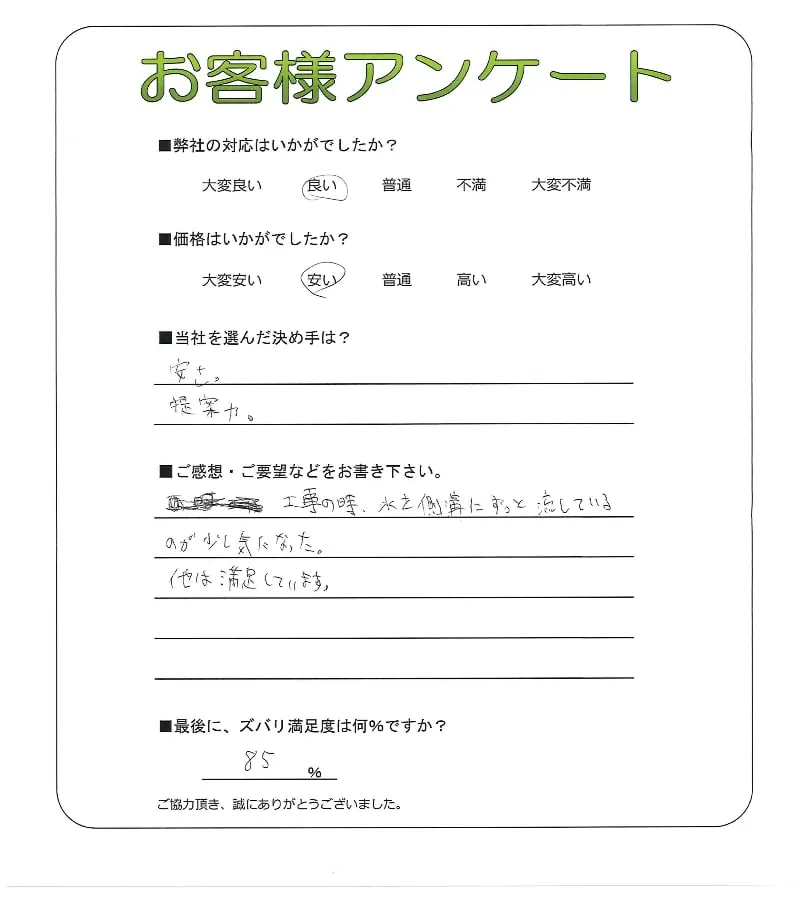 お客様アンケート
■弊社の対応はいかがでしたか？
大変良い 良い 普通 不満 大変不満
■価格はいかがでしたか？
大変安い 安い 普通 高い 大変高い
■当社を選んだ決め手は？
安さ。
提案力。
■ご感想・ご要望などをお書き下さい。
工事の時、水を側溝にずっと流している
のが少し気になった。
他は満足しています。
■最後に、ズバリ満足度は何％ですか？
85 %
ご協力頂き、誠にありがとうございました。